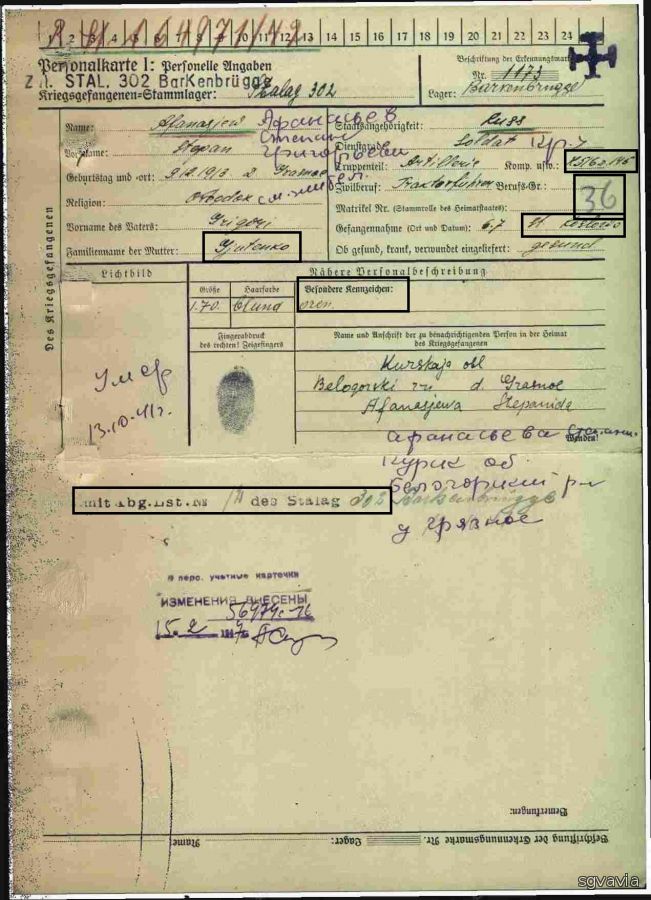 1 2 3 4 5 6 7 8 9 10 11 12 13 14 15 16 17 18 19 20 21 22 23 24
Personalkarte I: Personelle Angaben
STAL. 302 BarKenbrügge
Kriegsgefangenen-Stammlager: Stalag 302
Beschriftung der Erkennungsmarke
Nr. 1173
Lager: Barkenbrügge
Des Kriegsgefangenen
Name: Afanasjew Афанасьев
Vorname: Stepan Степан
Григорьевич
Geburtstag und -ort:
Religion: Ortodok
Vorname des Vaters: Grigori
Familienname der Mutter: Gjutenko
Staatsangehörigkeit: Russ
Dienstgrad: Soldat
Truppenteil: Artillerie Komp. usw.:
Zivilberuf: Traktorführer Berufs-Gr.:
36
Matrikel Nr. (Stammrolle des Heimatstaates):
Gefangennahme (Ort und Datum):
Ob gesund, krank, verwundet eingeliefert: gesund
Lichtbild
Nähere Personalbeschreibung
Größe Haarfarbe Besondere Kennzeichen:
1.70. blond
Fingerabdruck
des rechten! Zeigefingers
Name und Anschrift der zu benachrichtigenden Person in der Heimat
des Kriegsgefangenen
Kurskaja obl
Belogorski d. Grasnoe
Afanasjewa Stepanida
умер
13.10.41г.
Афанасьева
Wenden!
Курск об
Белогорский р-н
у Грязное
mit Abg.Lst.№ des Stalag 302 Barkenbrügge
в перс. учетные карточки
ИЗМЕНЕНИЯ ВНЕСЕНЫ
15.2
Bemerkungen:
Beschriftung der Erkennungsmarke Nr. Lager: Name:
sgvavia